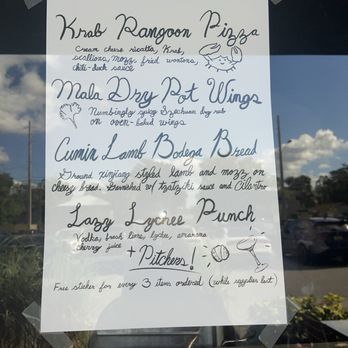 Krab Rangoon Pizza
Cream cheese ricotta, Krab,
scallions, mozz, fried wontons,
chili-duck sauce
Mala Dry Pot Wings
Numbingly spicy Szechuan dry rub
on oven-baked wings
Cumin Lamb Bodega Bread
Ground xinjiang styled lamb and mozz on
cheesy bread. Garnished w/ tzatziki sauce and Cilantro
Lazy Lychee Punch
Vodka, fresh lime, lychee, amarena
cherry juice
+ Pitchers!
Free sticker for every 3 items ordered (while supplies last)